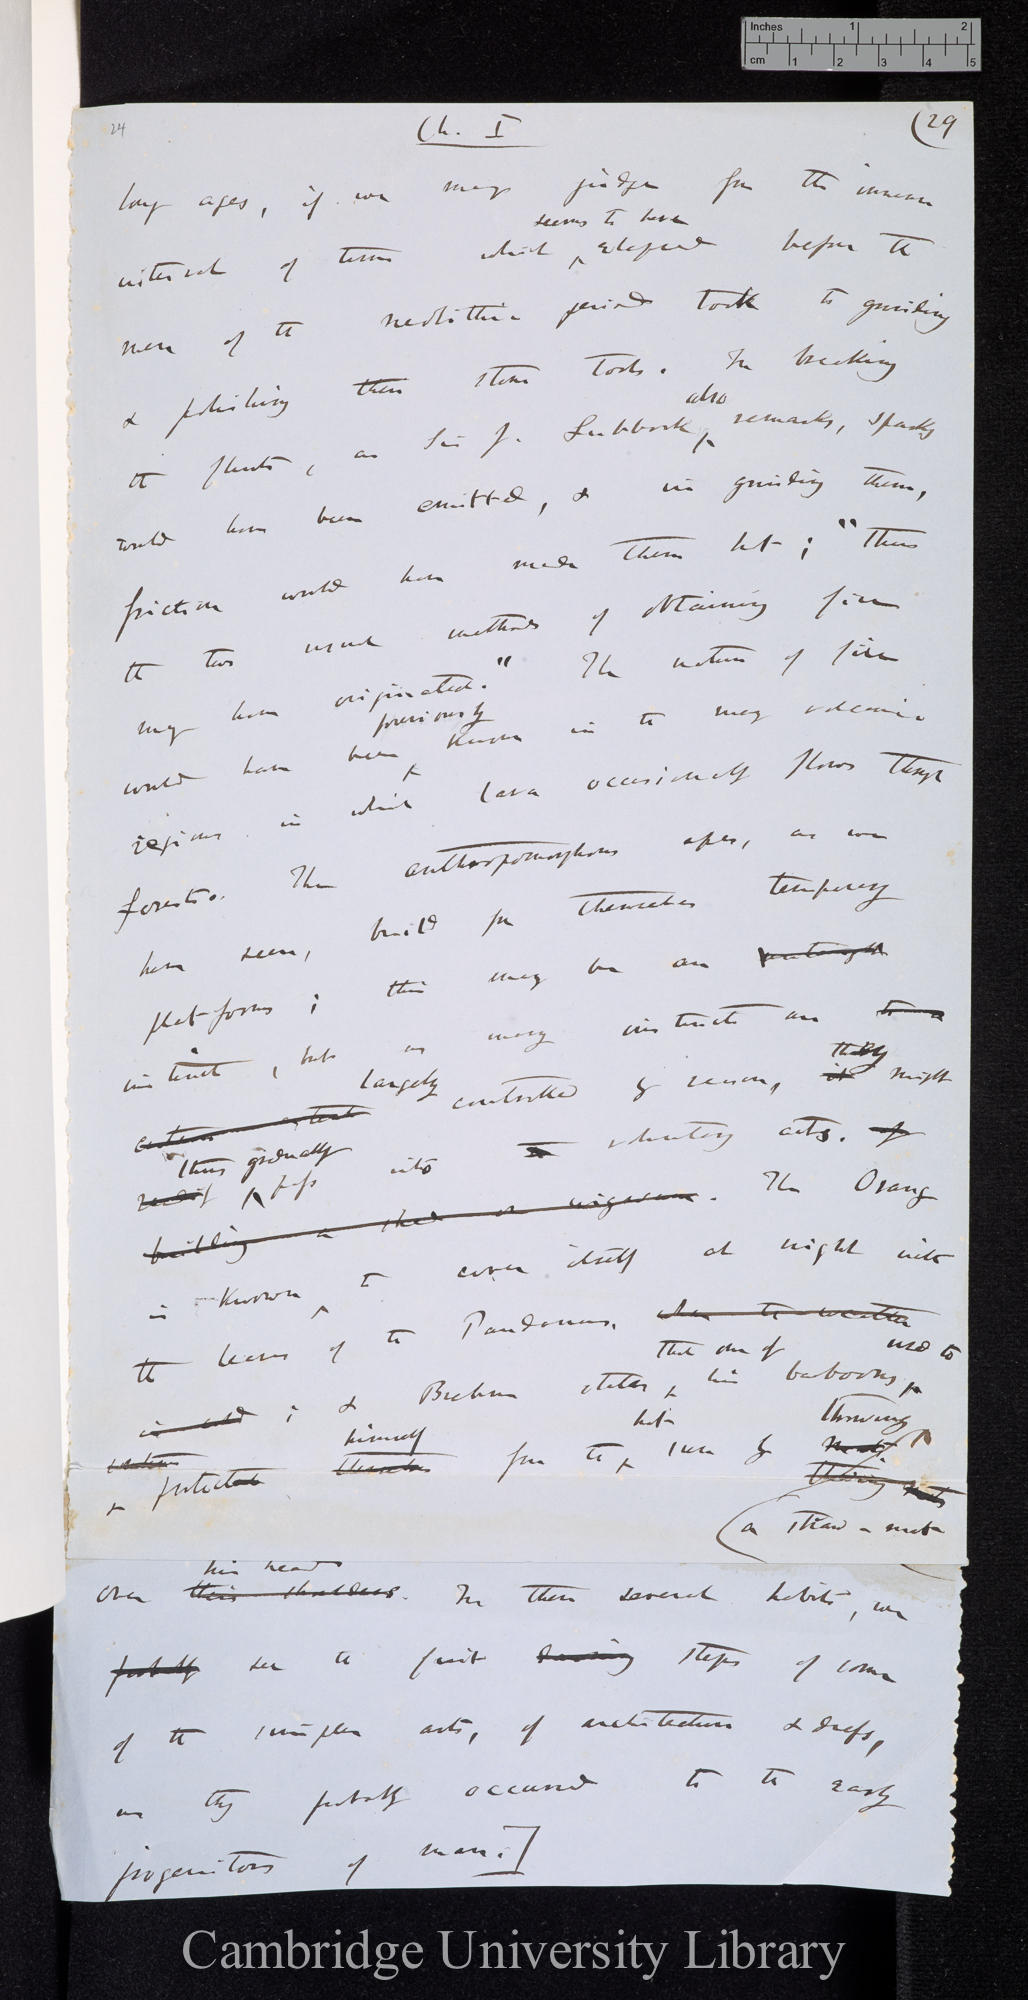 Inches 1 2
cm 1 2 3 4 5
24 Ch. I (29
long ages, if we may judge from the immense
seems to have
interval of time which ^ elapsed before the
men of the neolithic period took to grinding
& polishing their stone tools. In breaking
also
the flints, as Sir J. Lubbock ^ remarks, sparks
would have been emitted, & in grinding them,
friction would have made them hot; "thus
the two usual methods of obtaining fire
may have originated." The nature of fire
previously
would have been ^ known in the many volcanic
regions in which lava occasionally flows through
forests. The anthropomorphous apes, as we
have seen, build for themselves temporary
platforms; this may be an
instinct, but as many instincts are to a
largely they
certain extent controlled by reason, it might
thus gradually
readily ^ pass into a voluntary acts. of
building a shed or wigwam. The Orang
is known ^ to cover itself at night with
the leaves of the Pandanus, when the weather
that one of used to
is cold; & Brehm states ^ his baboons ^
himself hot throwing
& protected themselves from the ^ sun by
(a straw-mat
his head
over their shoulders. In these several habits, we
probably see the first steps of some
of the simpler arts, of architecture & dress,
as they probably occurred to the early
progenitors of man.]
Cambridge University Library